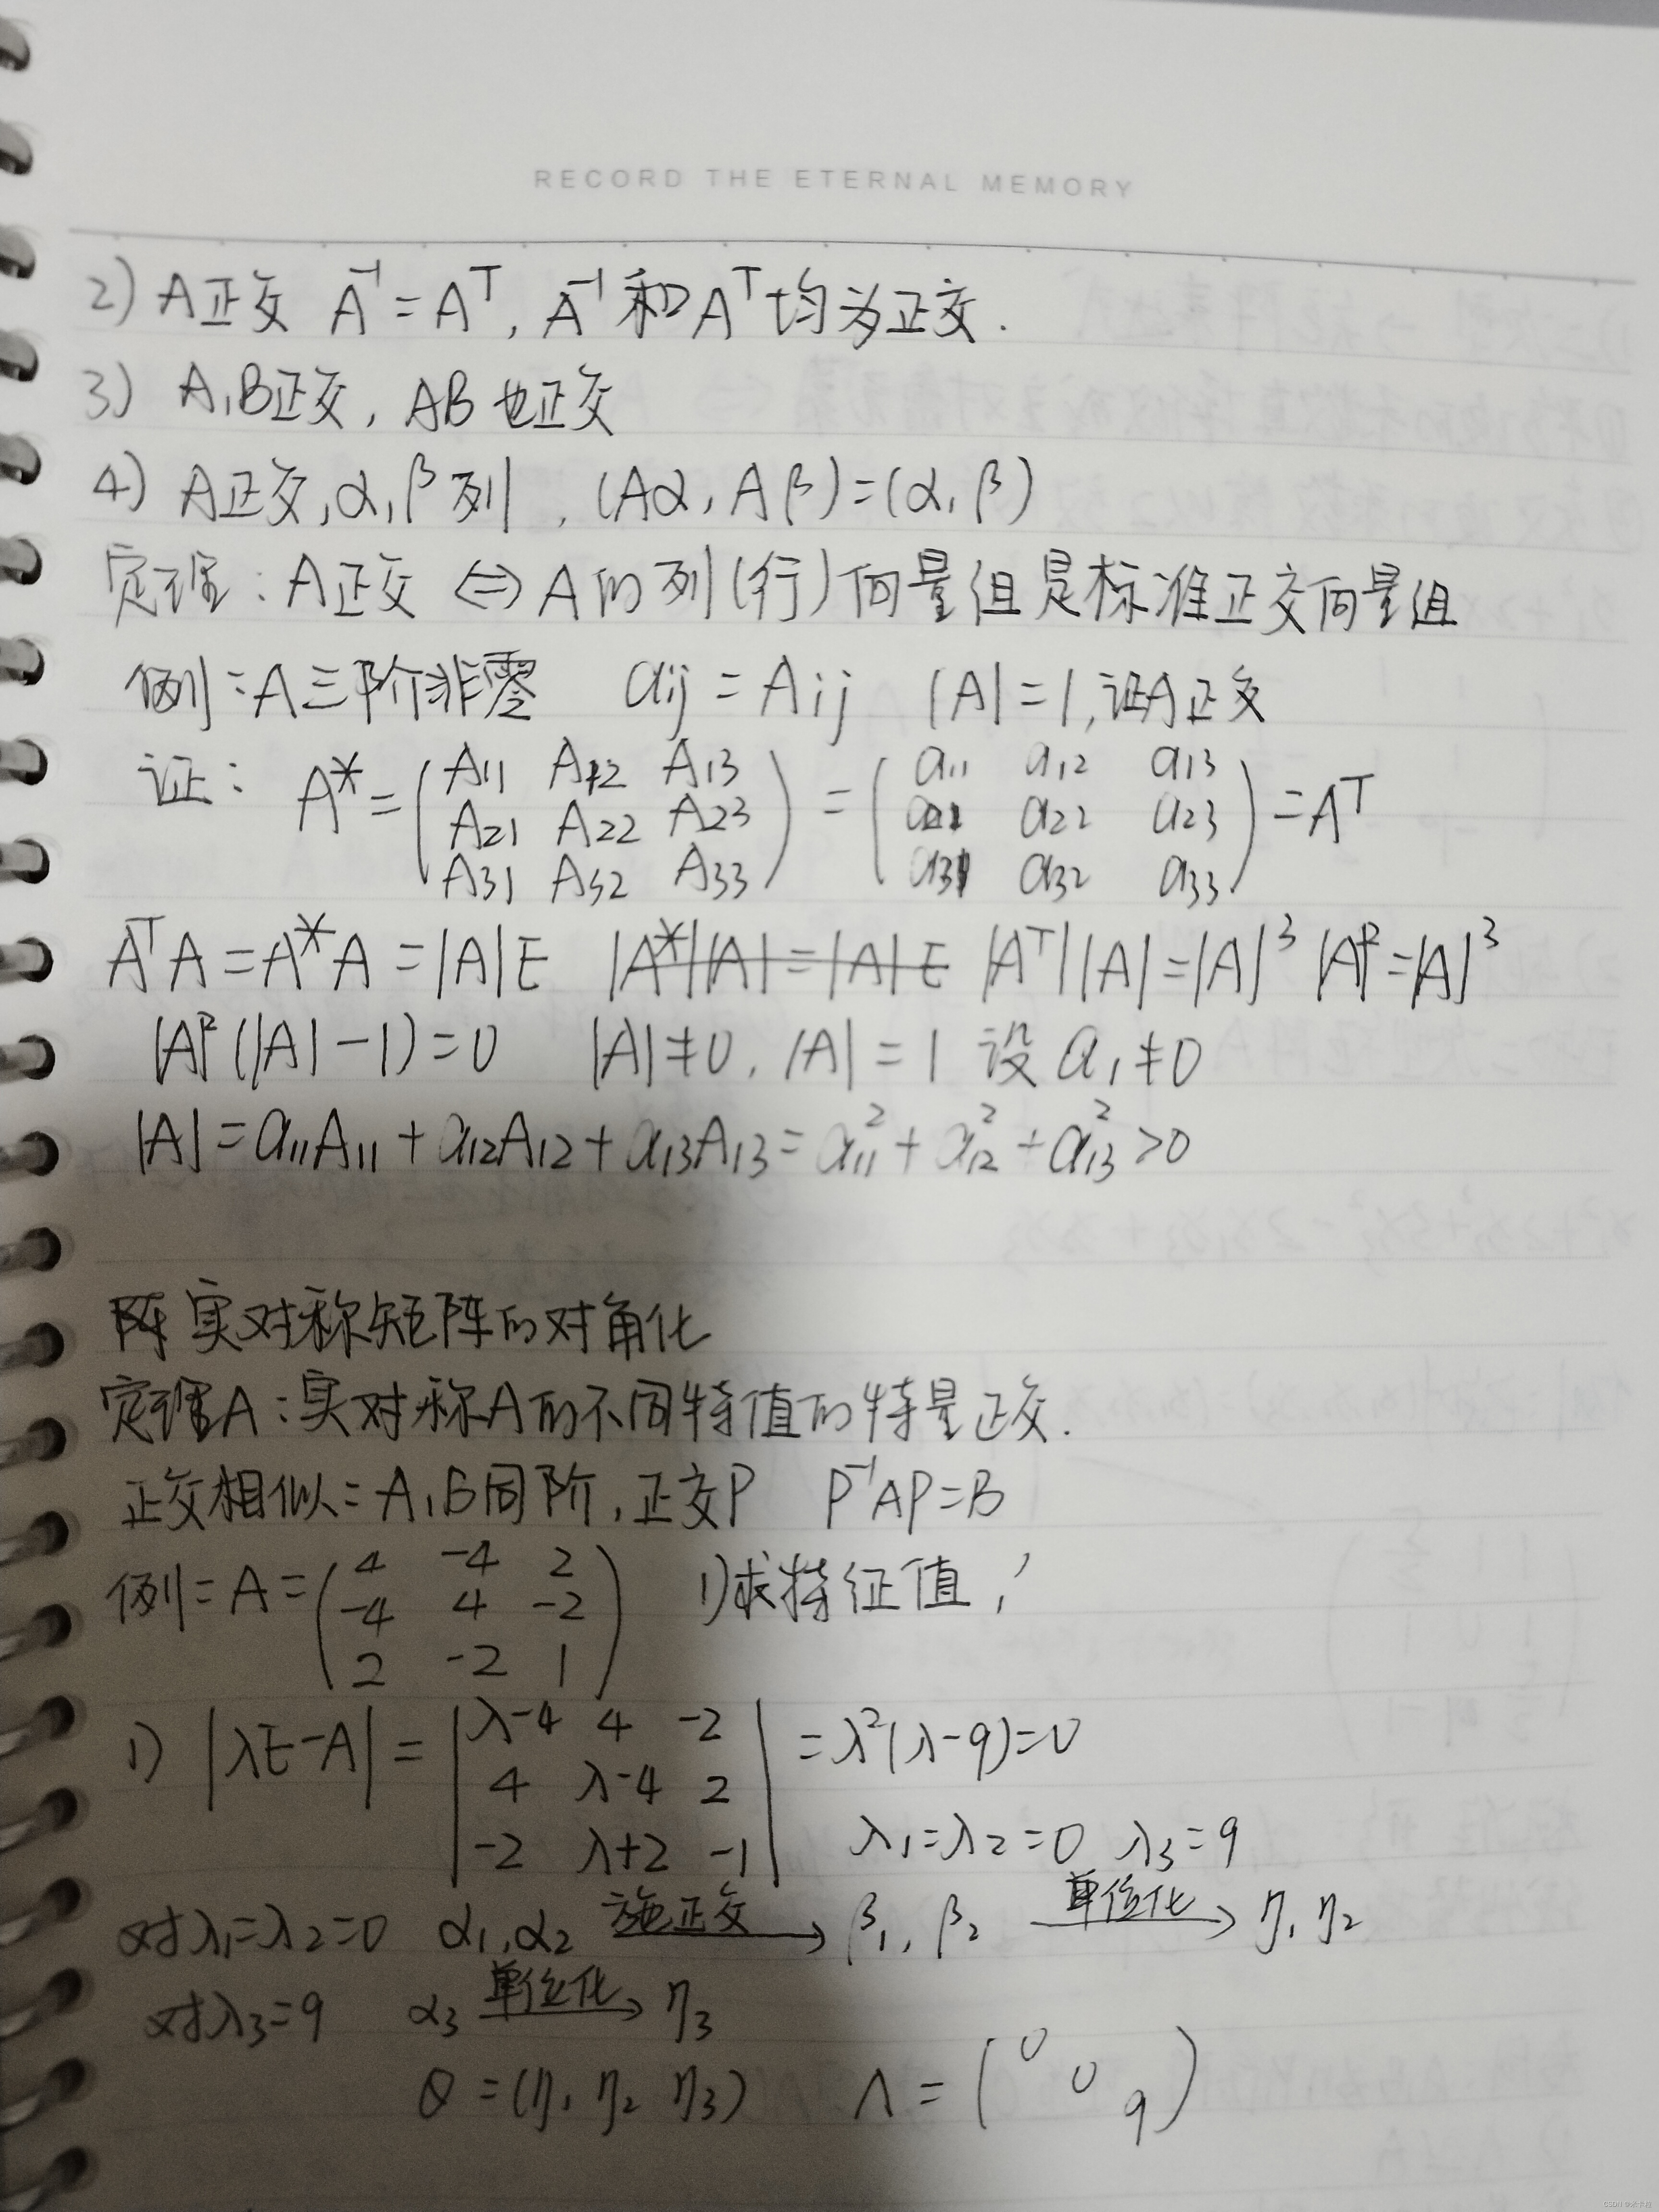 RECORD THE ETERNAL MEMORY
2) A正交 A⁻¹=Aᵀ, A⁻¹和Aᵀ均为正交.
3) A,B正交, AB也正交
4) A正交,α,β列, (Aα, Aβ)=(α,β)
定理:A正交 ⇔ A的列(行)向量组是标准正交向量组
例:A三阶非零 aij = Aij |A|=1,证A正交
证: A*=(A11 A12 A13 = (a11 a12 a13 =Aᵀ
A21 A22 A23 a21 a22 a23
A31 A32 A33) a31 a32 a33)
AᵀA=A*A=|A|E |A*||A|=|A|E |Aᵀ||A|=|A|³ |A|²=|A|³
|A|²(|A|-1)=0 |A|≠0, |A|=1 设a1≠0
|A|=a11A11+a12A12+a13A13=a11²+a12²+a13²>0
阵 实对称矩阵的对角化
定理A:实对称A的不同特值的特量正交.
正交相似:A,B同阶,正交P P⁻¹AP=B
例:A=(4 -4 2 1)求特征值,
-4 4 -2
2 -2 1)
1) |λE-A|=|λ-4 4 -2 =λ²(λ-9)=0
4 λ-4 2
-2 λ+2 -1| λ1=λ2=0 λ3=9
对λ1=λ2=0 α1,α2 施正交→ β1,β2 单位化→ η1 η2
对λ3=9 α3 单位化→ η3
Q=(η1 η2 η3) Λ=(0 0 9)
CSDN